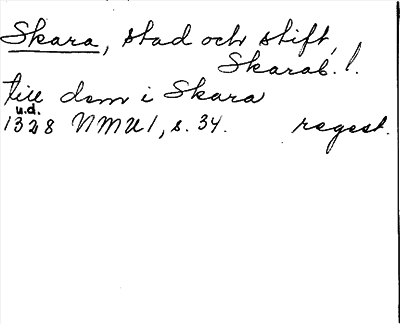 Skara, stad och stift,
Skarab. l.
till dom i Skara
u.d.
1328 NMU 1, s. 34. regest.